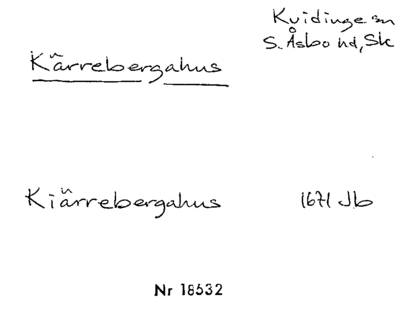 Kvidinge sn
S. Åsbo hd, Sk
Kärrebergahus
Kiärrebergahus 1671 Jb
Nr 18532